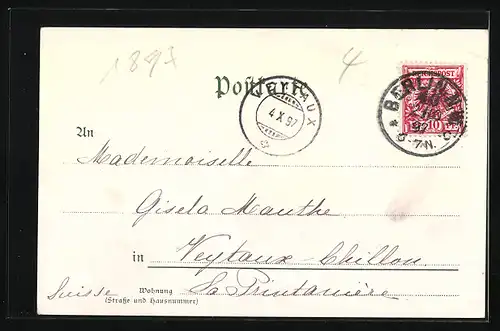 1897
4
Postkarte
REICHSPOST
10
BERLIN N.W.
97
6-7N.
VEYTAUX
4 X 97
An
Mademoiselle
Gisela Manthe
in Veytaux-Chillon
Suisse
Wohnung La Printanière
(Straße und Hausnummer)